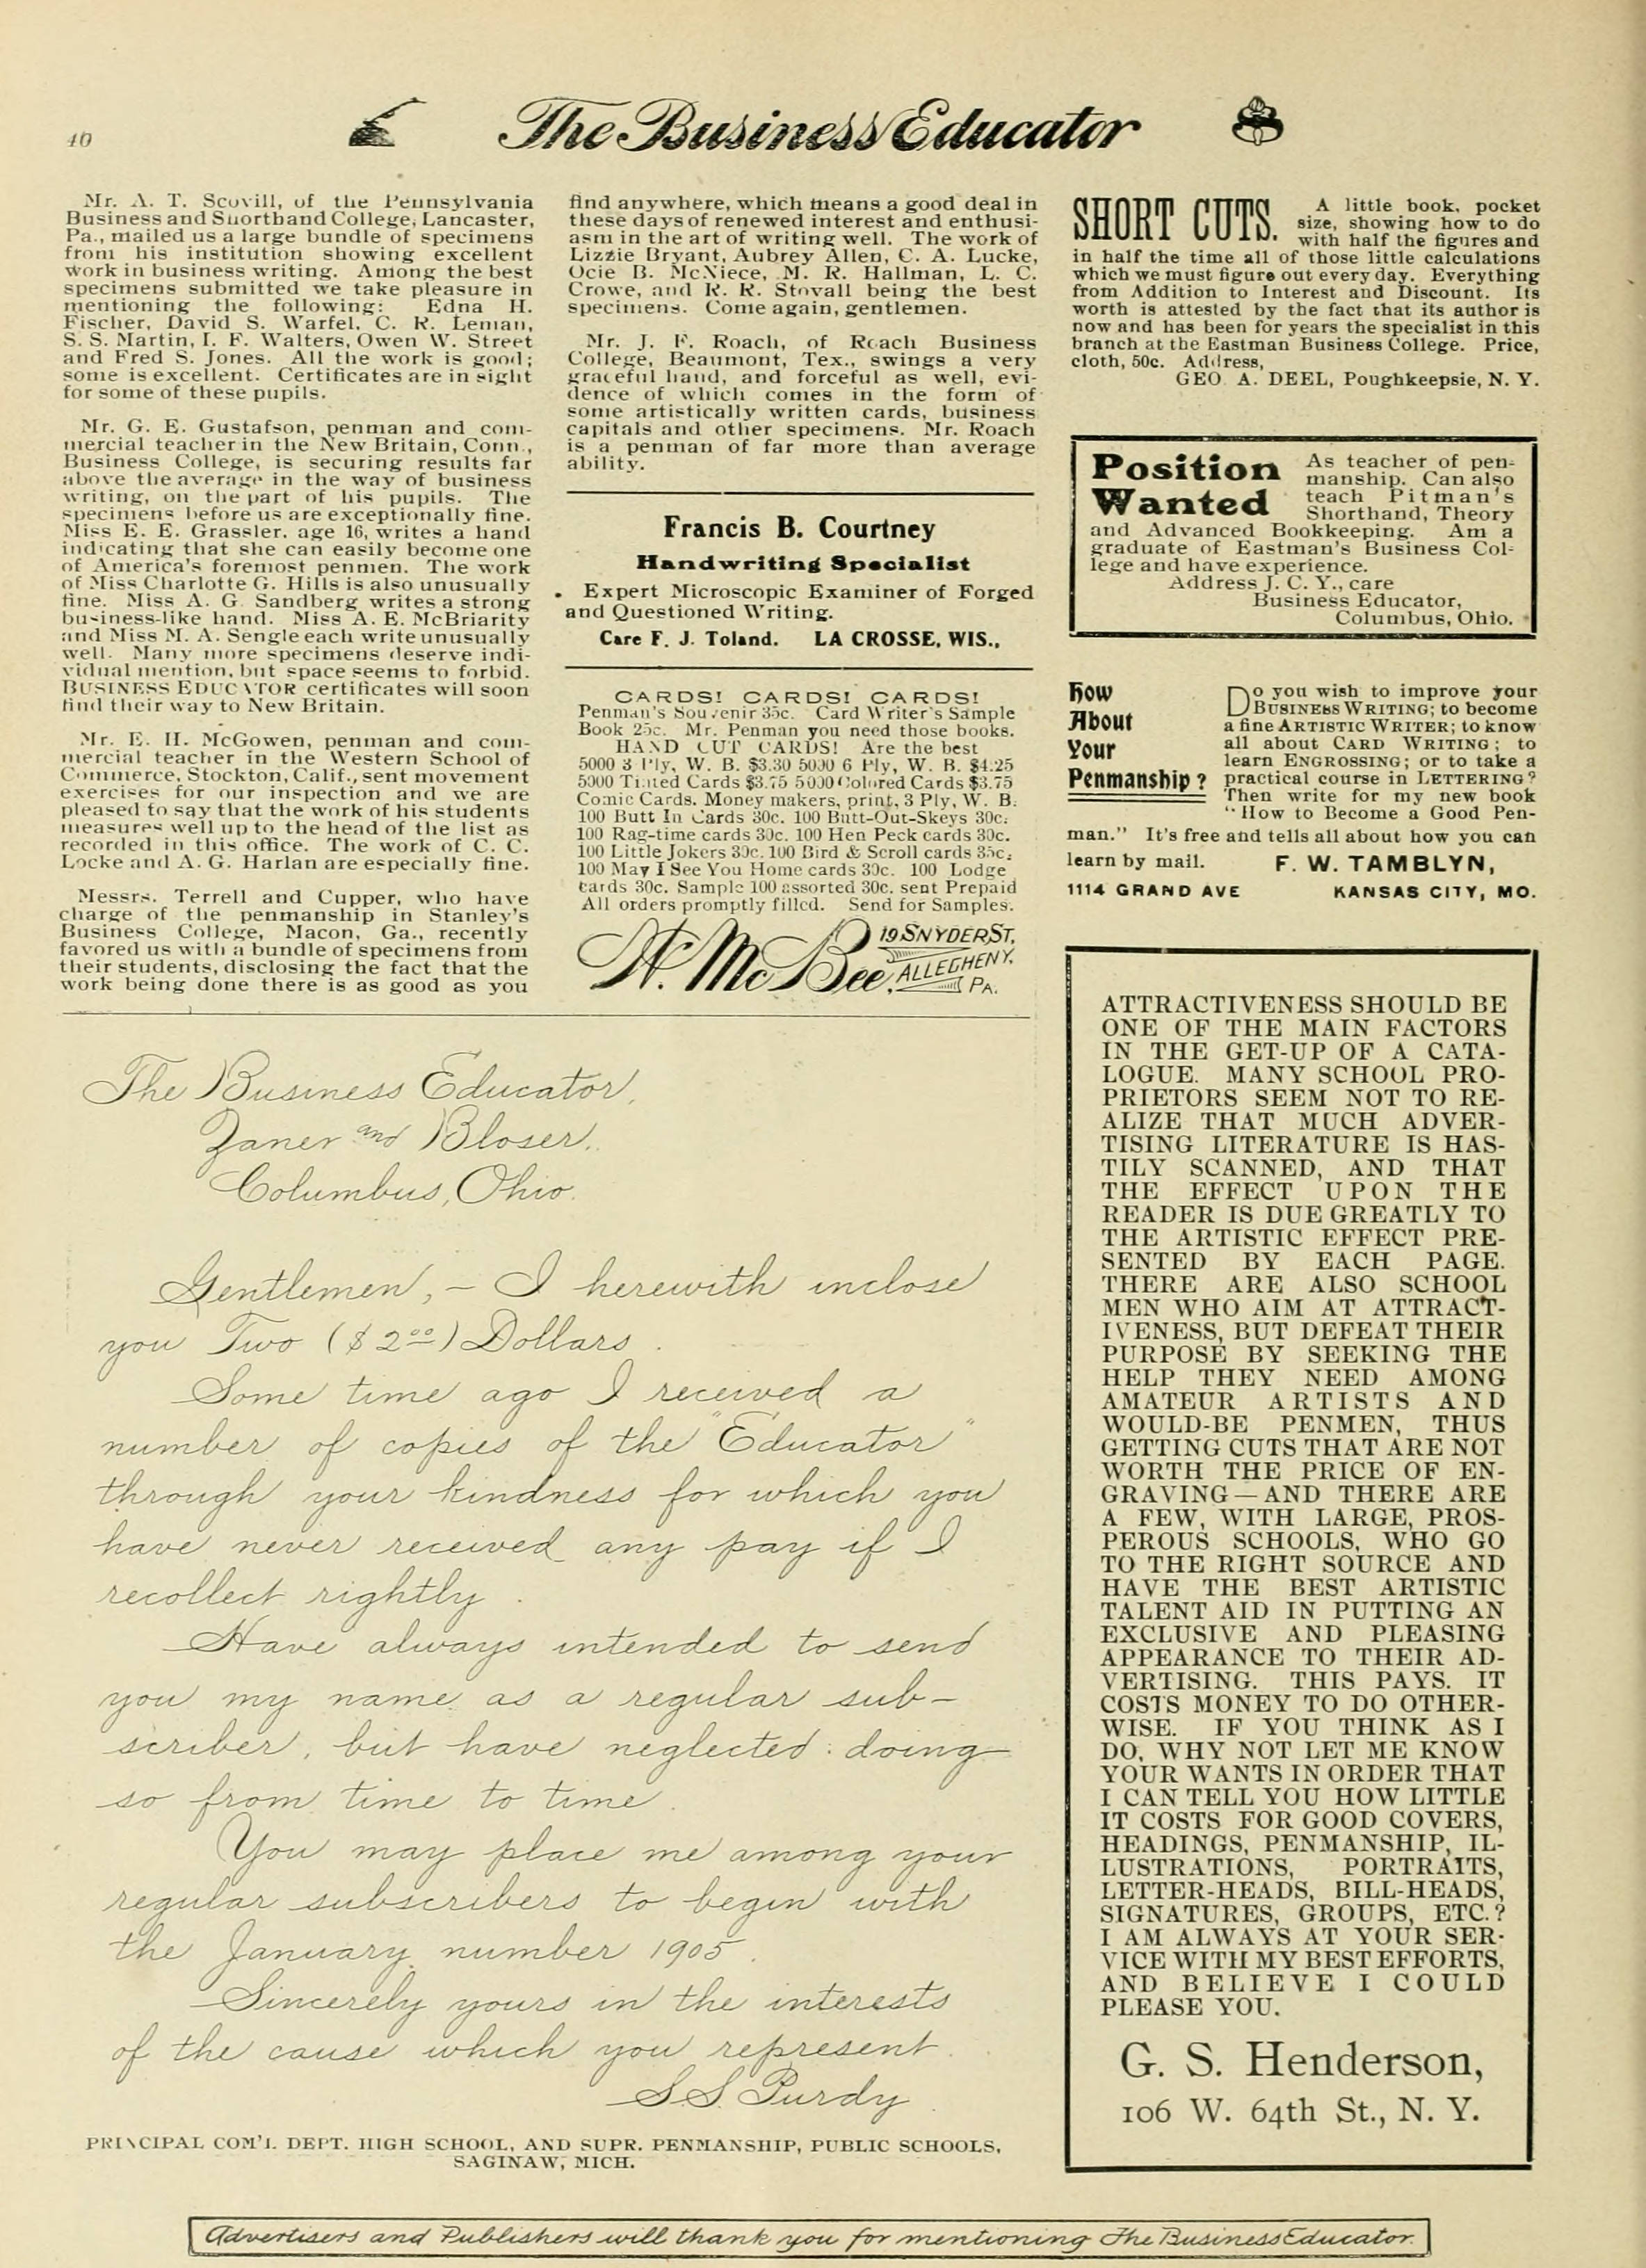 40
The Business Educator
Mr. A. T. Scovill, of the Pennsylvania
Business and Shorthand College, Lancaster,
Pa., mailed us a large bundle of specimens
from his institution showing excellent
work in business writing. Among the best
specimens submitted we take pleasure in
mentioning the following: Edna H.
Fischer, David S. Warfel, C. R. Leman,
S. S. Martin, I. F. Walters, Owen W. Street
and Fred S. Jones. All the work is good;
some is excellent. Certificates are in sight
for some of these pupils.
Mr. G. E. Gustafson, penman and com-
mercial teacher in the New Britain, Conn.,
Business College, is securing results far
above the average in the way of business
writing, on the part of his pupils. The
specimens before us are exceptionally fine.
Miss E. E. Grassler, age 16, writes a hand
indicating that she can easily become one
of America's foremost penmen. The work
of Miss Charlotte G. Hills is also unusually
fine. Miss A. G. Sandberg writes a strong
business-like hand. Miss A. E. McBriarity
and Miss M. A. Sengle each write unusually
well. Many more specimens deserve indi-
vidual mention, but space seems to forbid.
BUSINESS EDUCATOR certificates will soon
find their way to New Britain.
Mr. E. H. McGowen, penman and com-
mercial teacher in the Western School of
Commerce, Stockton, Calif., sent movement
exercises for our inspection and we are
pleased to say that the work of his students
measures well up to the head of the list as
recorded in this office. The work of C. C.
Locke and A. G. Harlan are especially fine.
Messrs. Terrell and Cupper, who have
charge of the penmanship in Stanley's
Business College, Macon, Ga., recently
favored us with a bundle of specimens from
their students, disclosing the fact that the
work being done there is as good as you
find anywhere, which means a good deal in
these days of renewed interest and enthusi-
asm in the art of writing well. The work of
Lizzie Bryant, Aubrey Allen, C. A. Lucke,
Ocie B. McNiece, M. R. Hallman, L. C.
Crowe, and R. R. Stovall being the best
specimens. Come again, gentlemen.
Mr. J. F. Roach, of Roach Business
College, Beaumont, Tex., swings a very
graceful hand, and forceful as well, evi-
dence of which comes in the form of
some artistically written cards, business
capitals and other specimens. Mr. Roach
is a penman of far more than average
ability.
Francis B. Courtney
Handwriting Specialist
Expert Microscopic Examiner of Forged
and Questioned Writing.
Care F. J. Toland. LA CROSSE, WIS.,
CARDS! CARDS! CARDS!
Penman's Souvenir 35c. Card Writer's Sample
Book 25c. Mr. Penman you need those books.
HAND CUT CARDS! Are the best
5000 3 Ply, W. B. $3.30 5000 6 Ply, W. B. $4.25
5000 Tinted Cards $3.75 5000 Colored Cards $3.75
Comic Cards. Money makers, print, 3 Ply, W. B.
100 Butt In Cards 30c. 100 Butt-Out-Skeys 30c.
100 Rag-time cards 30c. 100 Hen Peck cards 30c.
100 Little Jokers 30c. 100 Bird & Scroll cards 35c.
100 May I See You Home cards 30c. 100 Lodge
cards 30c. Sample 100 assorted 30c. sent Prepaid
All orders promptly filled. Send for Samples.
H. McBee, 19 SNYDER ST,
ALLEGHENY,
PA.
SHORT CUTS. A little book, pocket
size, showing how to do
with half the figures and
in half the time all of those little calculations
which we must figure out every day. Everything
from Addition to Interest and Discount. Its
worth is attested by the fact that its author is
now and has been for years the specialist in this
branch at the Eastman Business College. Price,
cloth, 50c. Address,
GEO A. DEEL, Poughkeepsie, N. Y.
Position
Wanted
As teacher of pen-
manship. Can also
teach Pitman's
Shorthand, Theory
and Advanced Bookkeeping. Am a
graduate of Eastman's Business Col-
lege and have experience.
Address J. C. Y., care
Business Educator,
Columbus, Ohio.
How
About
Your
Penmanship?
Do you wish to improve your
BUSINESS WRITING; to become
a fine ARTISTIC WRITER; to know
all about CARD WRITING; to
learn ENGROSSING; or to take a
practical course in LETTERING?
Then write for my new book
"How to Become a Good Pen-
man." It's free and tells all about how you can
learn by mail. F. W. TAMBLYN,
1114 GRAND AVE KANSAS CITY, MO.
ATTRACTIVENESS SHOULD BE
ONE OF THE MAIN FACTORS
IN THE GET-UP OF A CATA-
LOGUE. MANY SCHOOL PRO-
PRIETORS SEEM NOT TO RE-
ALIZE THAT MUCH ADVER-
TISING LITERATURE IS HAS-
TILY SCANNED, AND THAT
THE EFFECT UPON THE
READER IS DUE GREATLY TO
THE ARTISTIC EFFECT PRE-
SENTED BY EACH PAGE.
THERE ARE ALSO SCHOOL
MEN WHO AIM AT ATTRACT-
IVENESS, BUT DEFEAT THEIR
PURPOSE BY SEEKING THE
HELP THEY NEED AMONG
AMATEUR ARTISTS AND
WOULD-BE PENMEN, THUS
GETTING CUTS THAT ARE NOT
WORTH THE PRICE OF EN-
GRAVING—AND THERE ARE
A FEW, WITH LARGE, PROS-
PEROUS SCHOOLS, WHO GO
TO THE RIGHT SOURCE AND
HAVE THE BEST ARTISTIC
TALENT AID IN PUTTING AN
EXCLUSIVE AND PLEASING
APPEARANCE TO THEIR AD-
VERTISING. THIS PAYS. IT
COSTS MONEY TO DO OTHER-
WISE. IF YOU THINK AS I
DO, WHY NOT LET ME KNOW
YOUR WANTS IN ORDER THAT
I CAN TELL YOU HOW LITTLE
IT COSTS FOR GOOD COVERS,
HEADINGS, PENMANSHIP, IL-
LUSTRATIONS, PORTRAITS,
LETTER-HEADS, BILL-HEADS,
SIGNATURES, GROUPS, ETC.?
I AM ALWAYS AT YOUR SER-
VICE WITH MY BEST EFFORTS,
AND BELIEVE I COULD
PLEASE YOU.
G. S. Henderson,
106 W. 64th St., N. Y.
The Business Educator,
Zaner and Bloser,
Columbus, Ohio.
Gentlemen,- I herewith inclose
you Two ($2.00) Dollars.
Some time ago I received a
number of copies of the "Educator"
through your kindness for which you
have never received any pay if I
recollect rightly.
Have always intended to send
you my name as a regular sub-
scriber, but have neglected doing
so from time to time.
You may place me among your
regular subscribers to begin with
the January number 1905.
Sincerely yours in the interests
of the cause which you represent.
S.S. Purdy.
PRINCIPAL COM'L DEPT. HIGH SCHOOL, AND SUPR. PENMANSHIP, PUBLIC SCHOOLS,
SAGINAW, MICH.
Advertisers and Publishers will thank you for mentioning The Business Educator.